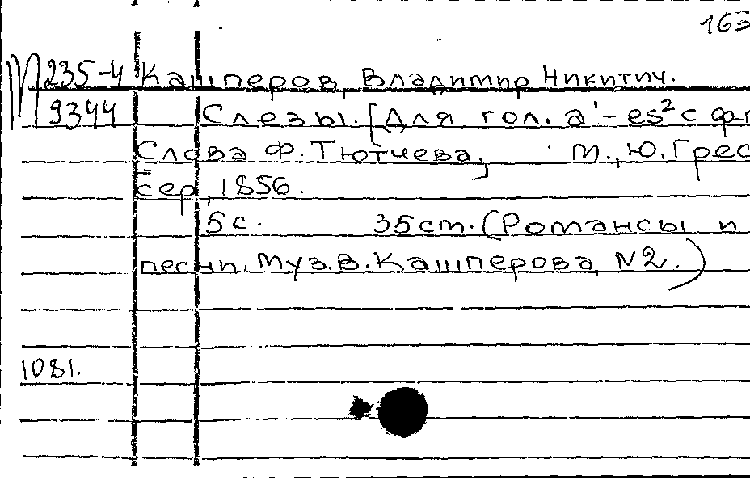 163
М 235-4 Кашперов, Владимир Никитич.
9344 Слезы. [Для гол. a¹-es² с ф-п
Слова Ф. Тютчева, М., Ю. Грес
сер, 1856.
5с. 35 cm. (Романсы и
песни. Муз. В. Кашперова, N2.)
1081.